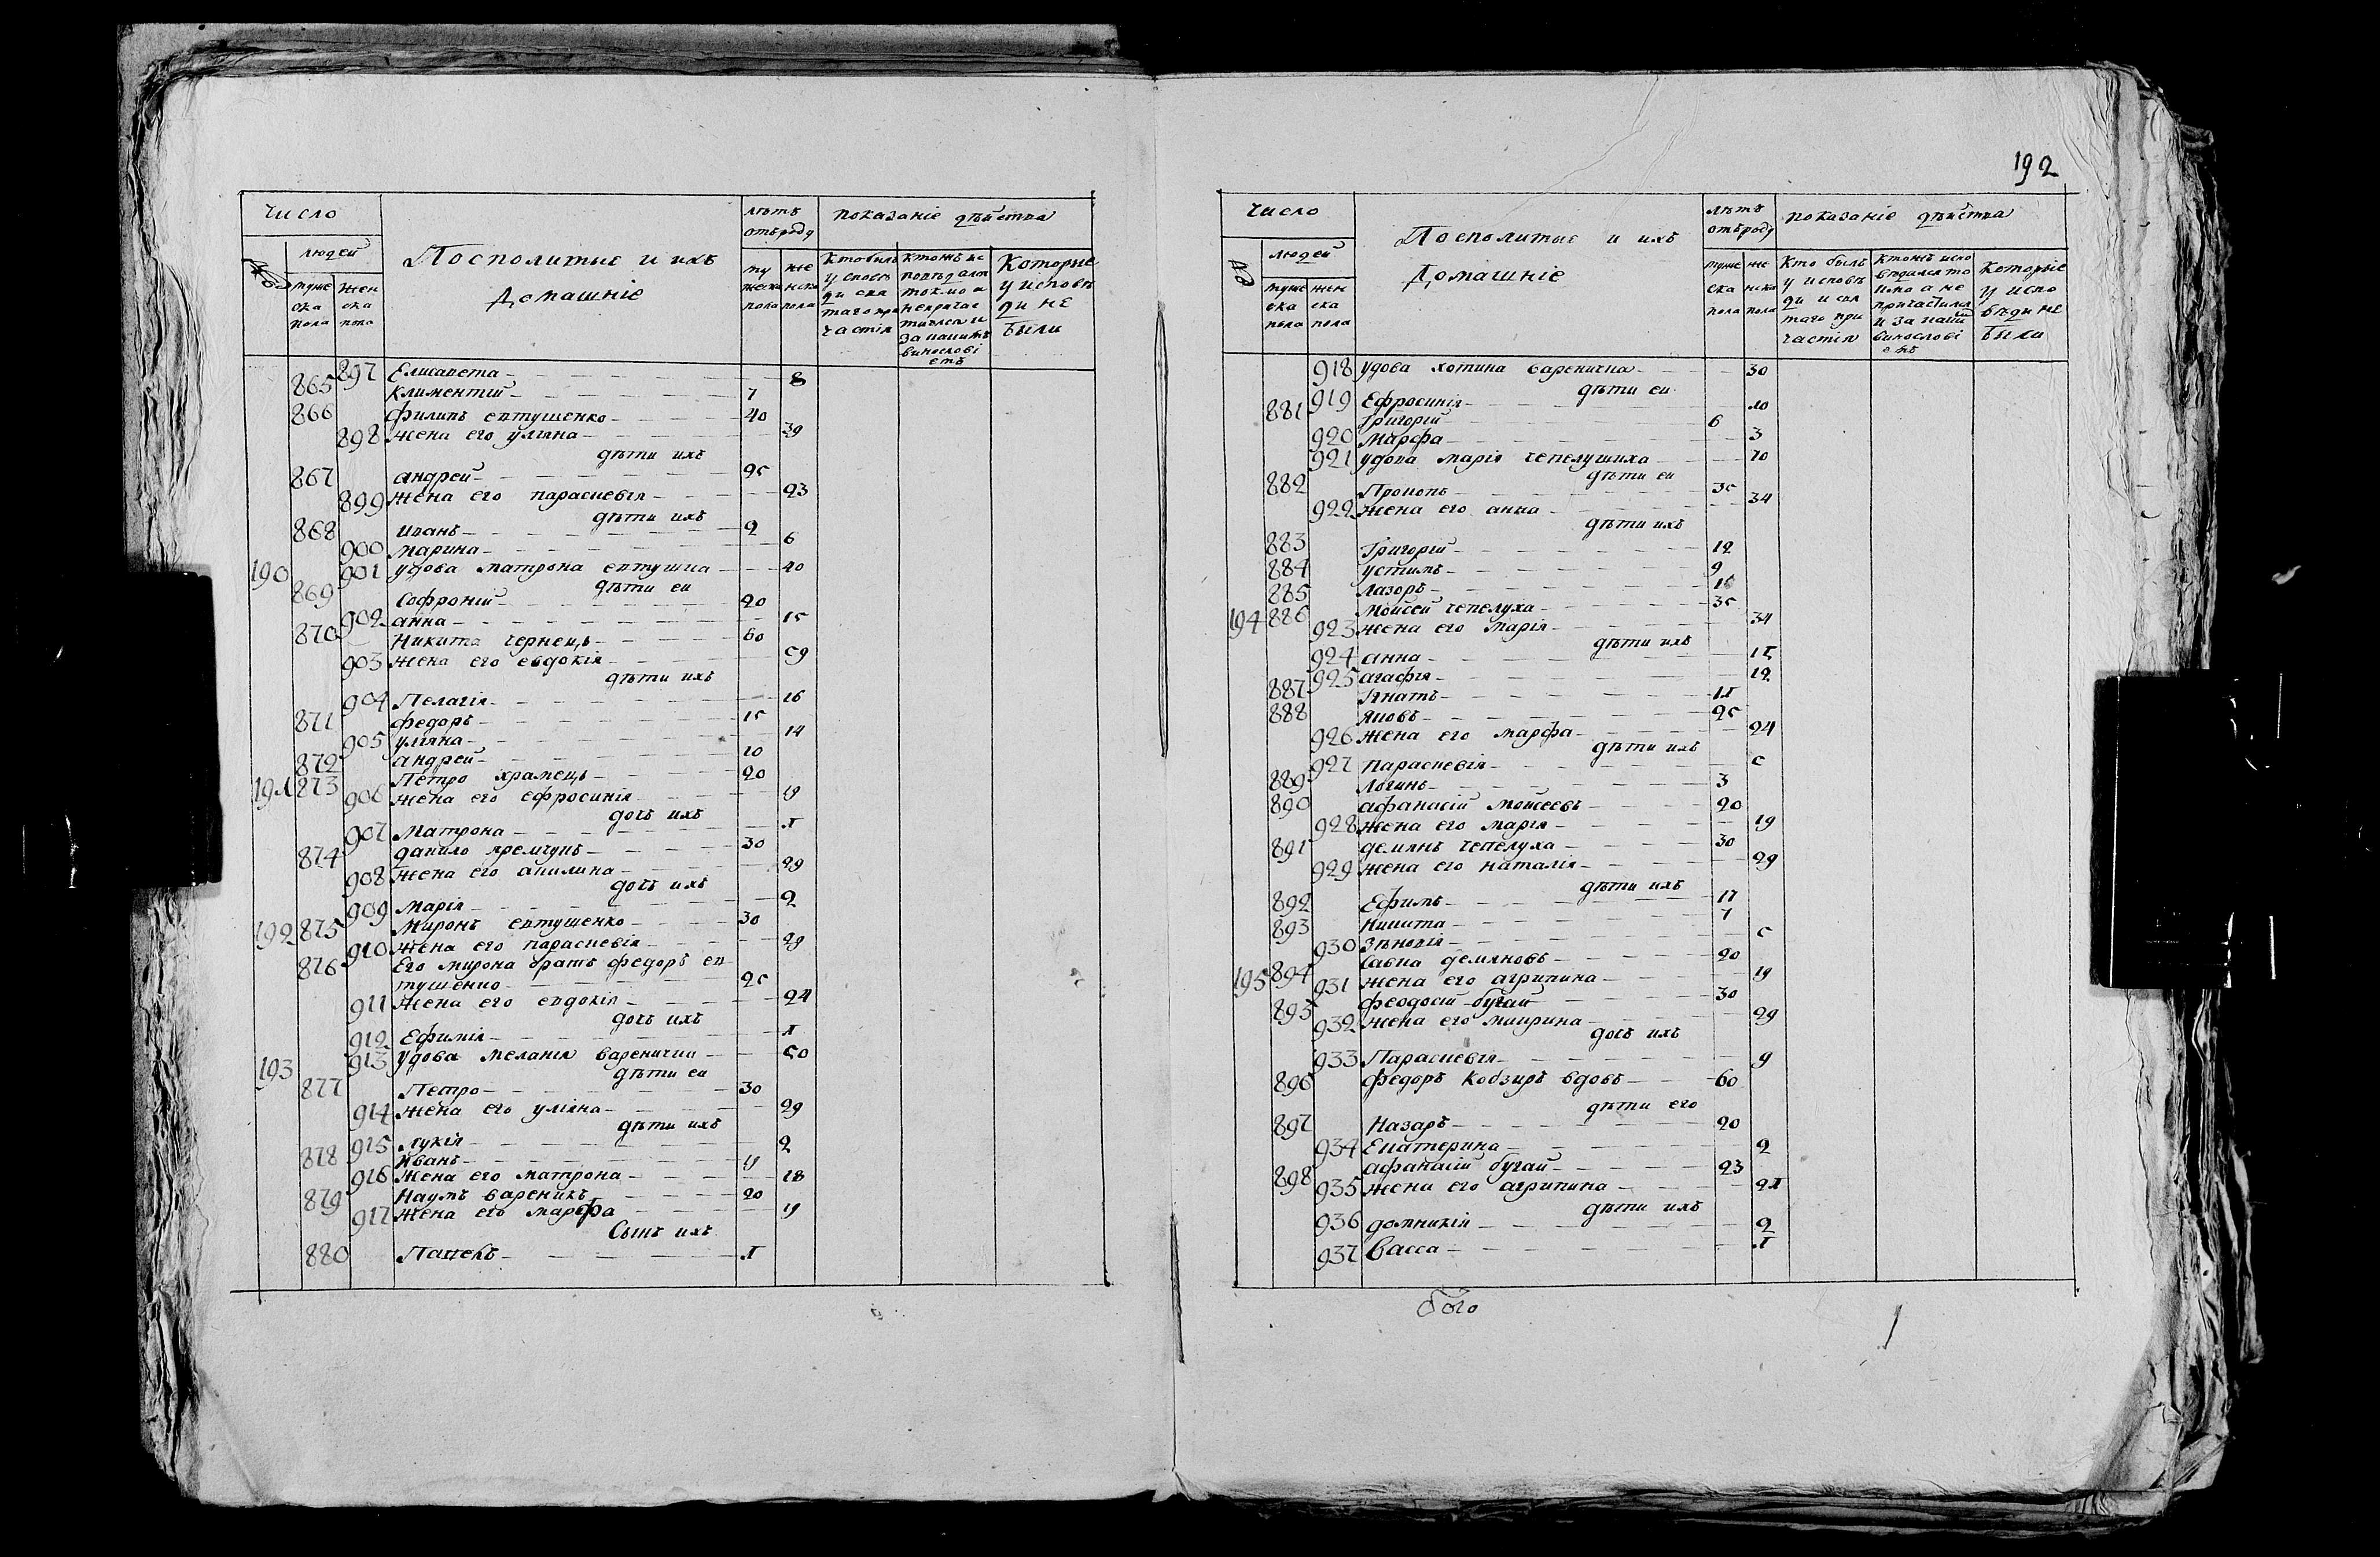 число
лѣтъ отъ роду
показанїе дѣиства
людей
Посполитые и ихъ
Домашнїе
муже ска пола
жен ска пола
Которые у исповѣ ди не были
897 Елисавета 8
865 Климентїй 7
866 филипъ евтушенко 40
898 жена его улїяна 39
дѣти ихъ
867 андрей 25
899 жена его параскевїя 23
дѣти ихъ
868 иванъ 2
900 марина 6
190 901 удова матрона евтушка 40
дѣти еи
869 Софронїй 20
902 анна 15
870 Никита чернецъ 60
903 жена его евдокїя 59
дѣти ихъ
904 Пелагїя 16
871 федоръ 15
905 улїяна 14
872 андрей 10
191 873 Петро храмецъ 20
906 жена его ефросинїя 19
дочь ихъ
907 Матрона 1
874 данило кремчукъ 30
908 жена его акилина 29
дочь ихъ
909 Марїя 2
192 875 Миронъ евтушенко 30
910 жена его параскевїя 29
876 Его мирона братъ федоръ ев
тушенко 25
911 жена его евдокїя 24
дочь ихъ
912 Ефимїя 1
193 913 удова меланїя вареничка 50
дѣти еи
877 Петро 30
914 жена его улїяна 29
дѣти ихъ
915 лукїя 2
878 Иванъ 19
916 жена его матрона 18
879 Наумъ вареникъ 20
917 жена его марфа 19
Сынъ ихъ
880 1
192
число
лѣтъ отъ роду
показанїе дѣиства
людеи
Посполитые и ихъ
Домашнїе
муже ска пола
жен ска пола
Кто былъ у исповѣ ди и свя таго при частїя
которые у испо вѣди не были
918 удова хотина вареничка 30
дѣти еи
919 Ефросинїя 10
881 Григорїй 6
920 Марфа 3
921 удова марїя чепелушиха 70
дѣти еи
882 Прокопъ 35
922 жена его анна 34
дѣти ихъ
883 Григорїй 12
884 устимъ 9
885 лазоръ
194 886 Мойсей чепелуха 35
923 жена его марїя 34
дѣти ихъ
924 анна 15
925 агафїя 12
887 Игнатъ 11
888 яковъ 25
926 жена его марфа 24
дѣти ихъ
927 Параскевїя 5
889 Логинъ 3
890 афанасїй Мойсеевъ 20
928 жена его марїя 19
891 демянъ чепелуха 30
929 жена его наталїя 29
дѣти ихъ
892 Ефимъ 17
893 Никита 7
930 Зѣновїя 5
195 894 Савка демяновъ 20
931 жена его агрипина 19
895 феодосїй бугай 30
932 жена его мокрина 29
дочь ихъ
933 Параскевїя 9
896 федоръ кобзиръ вдовъ 60
дѣти его
897 Назаръ 20
934 Екатерина 2
898 афанасїй бугай 23
935 жена его агрипина 21
дѣти ихъ
936 домникїя 2
937 Васса 1